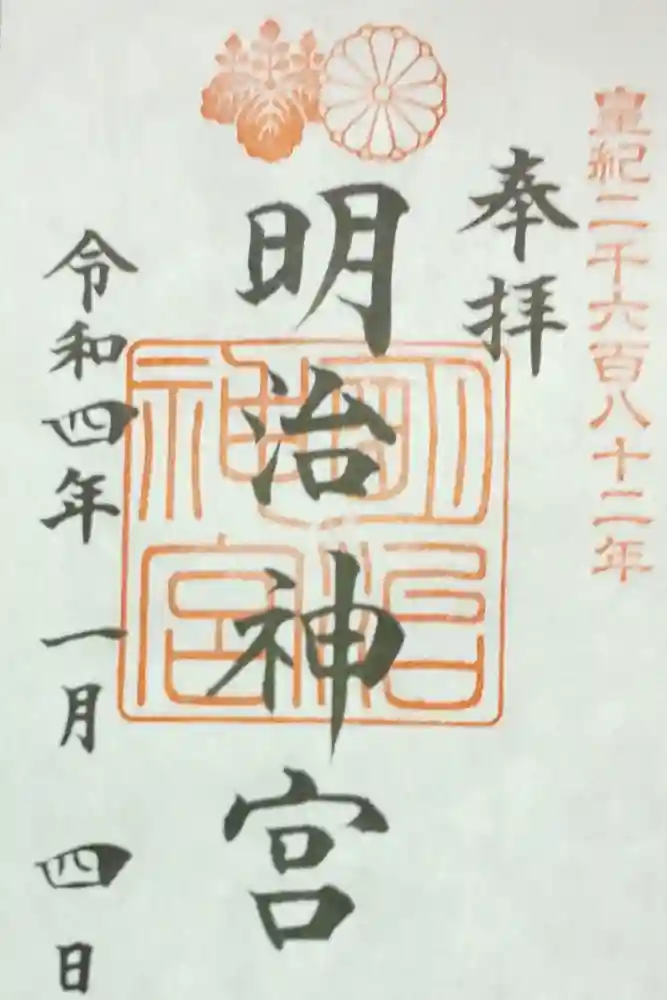 皇紀二千六百八十二年
奉拝
明治神宮
明治神宮
令和四年 一月 四日